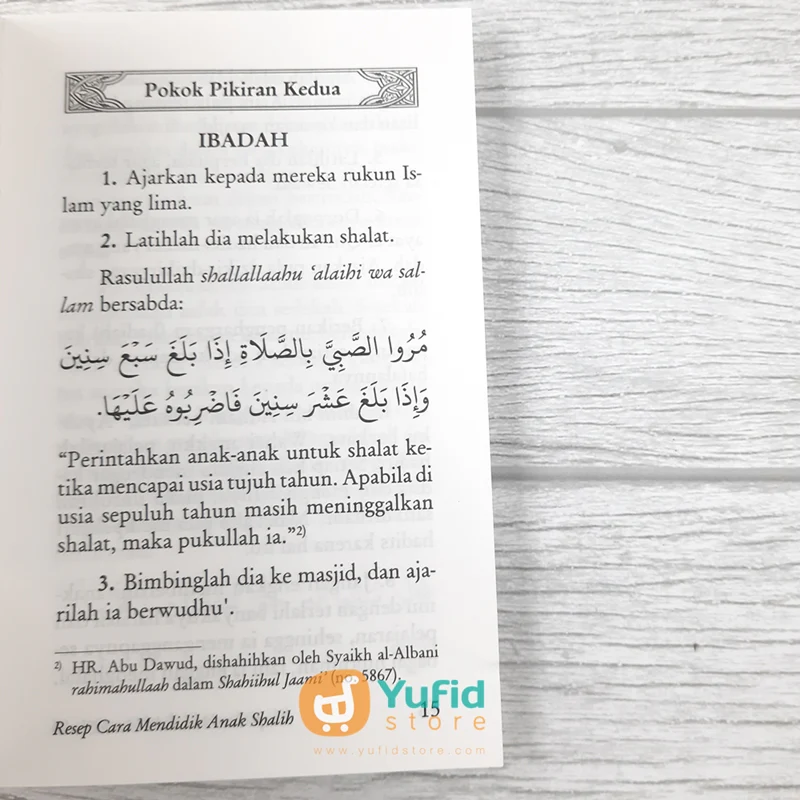 Pokok Pikiran Kedua
IBADAH
1. Ajarkan kepada mereka rukun Is-
lam yang lima.
2. Latihlah dia melakukan shalat.
Rasulullah shallallaahu ‘alaihi wa sal-
lam bersabda:
مُرُوا الصَّبِيَّ بِالصَّلَاةِ إِذَا بَلَغَ سَبْعَ سِنِينَ
وَإِذَا بَلَغَ عَشْرَ سِنِينَ فَاضْرِبُوهُ عَلَيْهَا.
“Perintahkan anak-anak untuk shalat ke-
tika mencapai usia tujuh tahun. Apabila di
usia sepuluh tahun masih meninggalkan
shalat, maka pukullah ia.”2)
3. Bimbinglah dia ke masjid, dan aja-
rilah ia berwudhu'.
2) HR. Abu Dawud, dishahihkan oleh Syaikh al-Albani
rahimahullaah dalam Shahiihul Jaami’ (no. 5867).
Resep Cara Mendidik Anak Shalih 15
Yufid
store
www.yufidstore.com